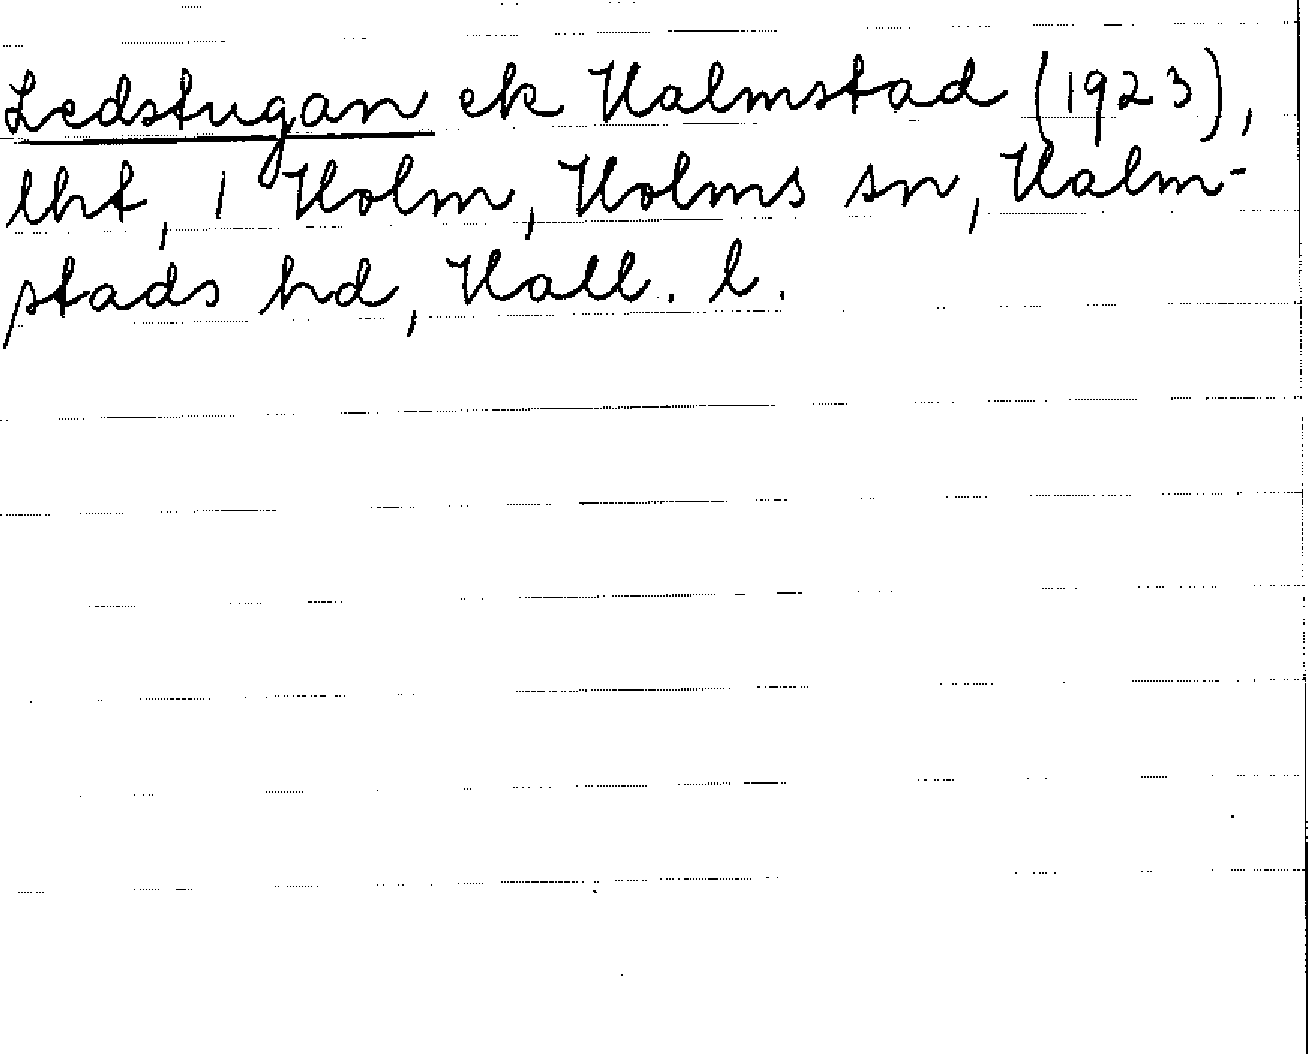 Ledstugan ek Halmstad (1923),
lht, i Holm, Holms sn, Halm-
stads hd, Hall. l.